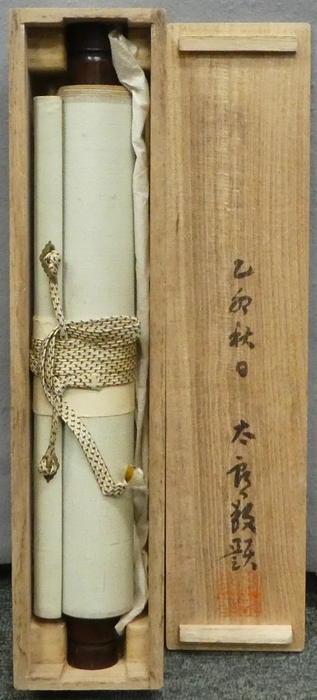 乙卯秋日 太郎敬題